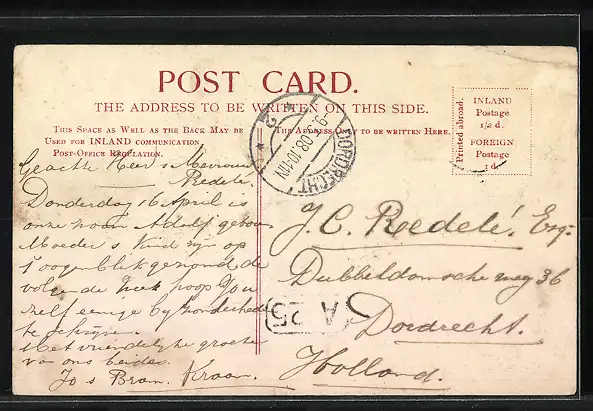 POST CARD.
THE ADDRESS TO BE WRITTEN ON THIS SIDE.
THIS SPACE AS WELL AS THE BACK MAY BE
USED FOR INLAND COMMUNICATION.
POST-OFFICE REGULATION.
THE ADDRESS ONLY TO BE WRITTEN HERE.
Printed abroad.
INLAND
Postage
1/2 d.
FOREIGN
Postage
1 d.
DORDRECHT
08.10-11N
Geachte Heer & Mevrouw
Redelé,
Donderdag 16 April is
onze zoon Adolf geboren
Moeder & Kind zijn op
't oogenblik gezond, de
volgende week hoop Jou
zelf eenige bijzonderheden
te schrijven.
Met vriendelijke groeten
van ons beiden.
Jo & Bram. Kraan.
J. C. Redelé, Esq.
Dubbeldamsche weg 36
Dordrecht.
Holland.
A 25